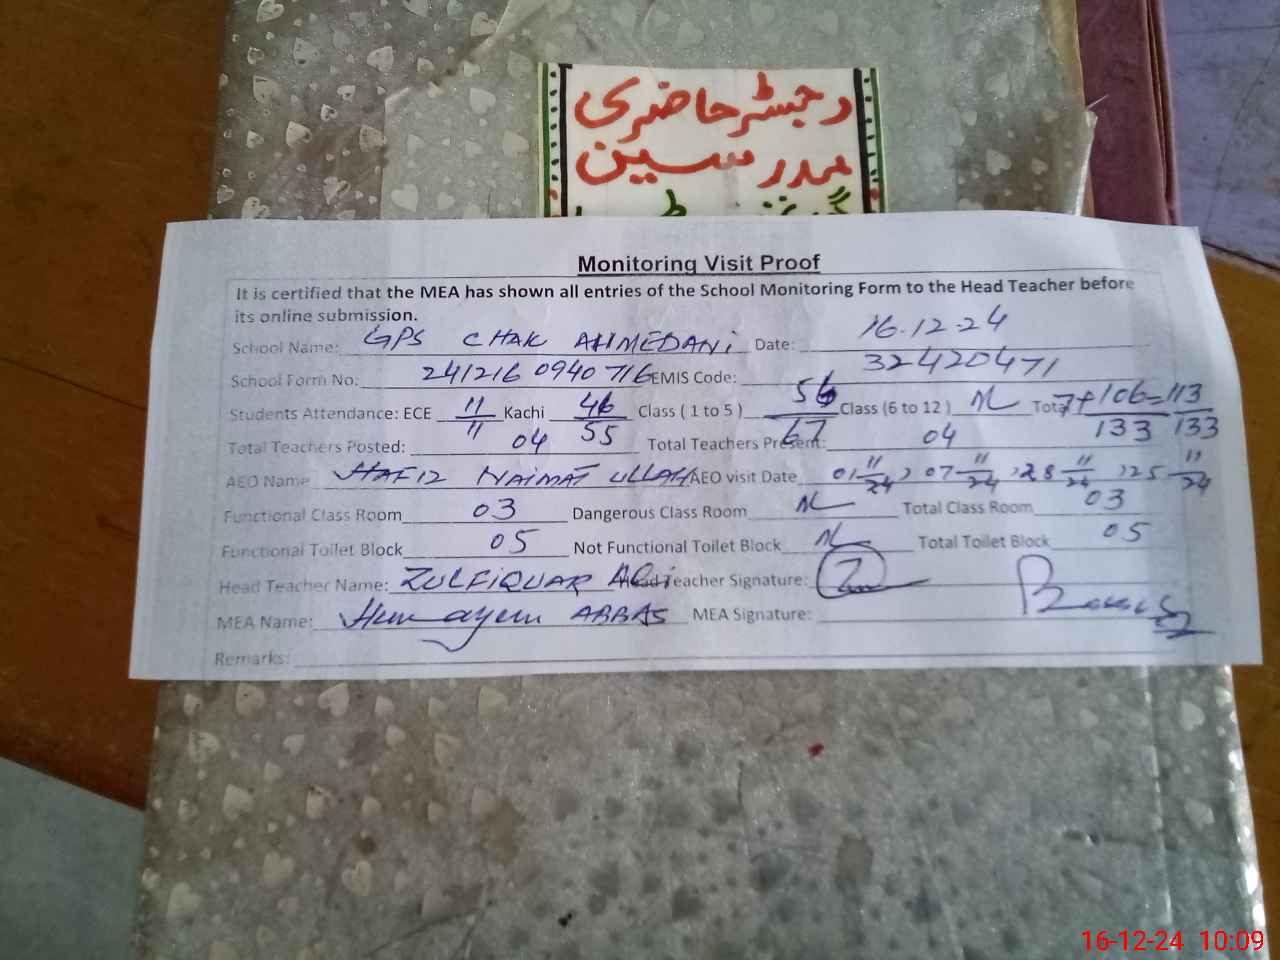 رجسٹر حاضری
مدرسین
Monitoring Visit Proof
It is certified that the MEA has shown all entries of the School Monitoring Form to the Head Teacher before
its online submission.
School Name: GPS CHAK AHMEDANi Date: 16.12.24
School Form No: 241216 0940 716 EMIS Code: 32420471
Students Attendance: ECE 11/11 Kachi 46/55 Class ( 1 to 5 ) 56/67 Class (6 to 12 ) NL Total 7+106=113/133 113/133
Total Teachers Posted: 04 Total Teachers Present: 04
AEO Name HAFIZ NAiMAT ULLAH AEO visit Date 01 11/24, 07 11/24, 28 11/24, 25 11/24
Functional Class Room 03 Dangerous Class Room NL Total Class Room 03
Functional Toilet Block 05 Not Functional Toilet Block NL Total Toilet Block 05
Head Teacher Name: ZULFIQUAR ALi Head Teacher Signature:
MEA Name: Humayun ABBAS MEA Signature:
Remarks:
16-12-24 10:09